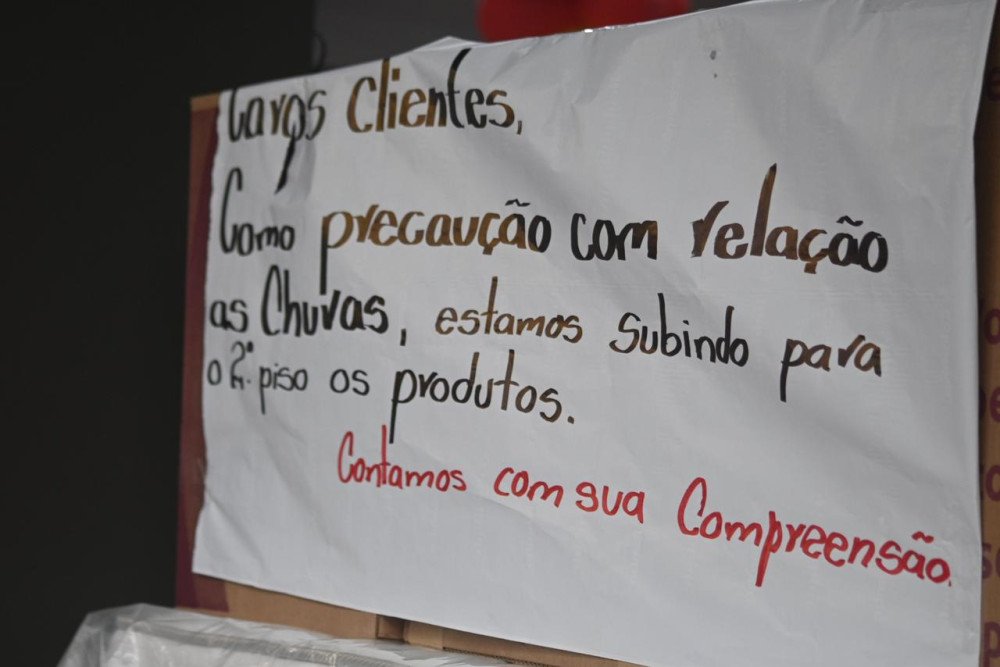 Caros Clientes,
Como precaução com relação
as Chuvas, estamos subindo para
o 2º. piso os produtos.
Contamos com sua Compreensão.